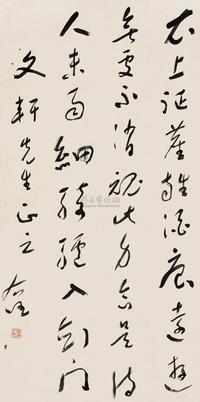 衣上征塵雜酒痕遠遊
無處不消魂此身合是詩
人未雨細騎驢入劍門
文軒先生正之
右任